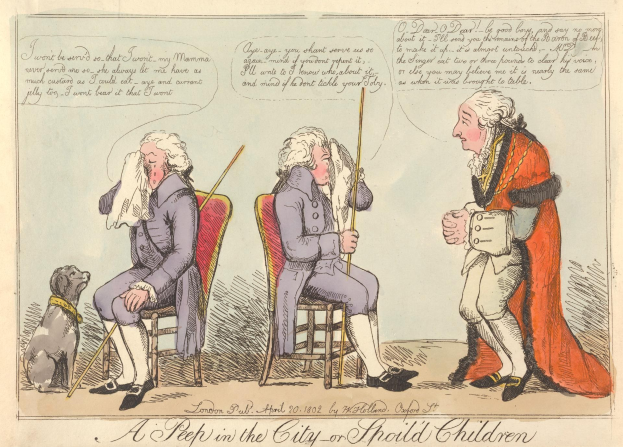 I wont be serv'd so that I wont, my Mamma
never serv'd me so she always let me have as
much custard as I could eat - aye and currant
jelly too, I wont bear it that I wont
Aye aye you shant serve us so
again - mind if you dont repent it;
I'll write to I know who, about it
and mind if he dont tickle your Toby.
O Dear O Dear!! be good boys, and say no more
about it - I'll send you the remains of the Baron of Beef
to make it up, it is almost untouch'd
the Singer eat two or three pounds to clear his voice,
or else you may believe me it is nearly the same
as when it was brought to table.
London Pub. April 20 1802 by W Holland Oxford St
A Peep in the City - or Spoil'd Children